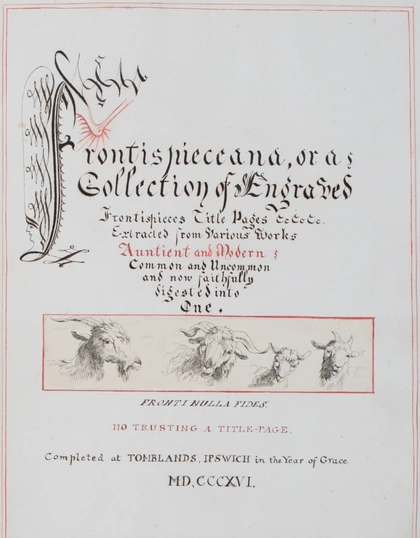 Frontispieceana, or a
Collection of Engraved
Frontispieces Title Pages &c &c &c.
Extracted from Various Works
Auntient and Modern ;
Common and Uncommon
and now faithfully
digested into
One.
FRONTI NULLA FIDES.
NO TRUSTING A TITLE-PAGE.
Completed at TOMBLANDS, IPSWICH in the Year of Grace
MD,CCCXVI.